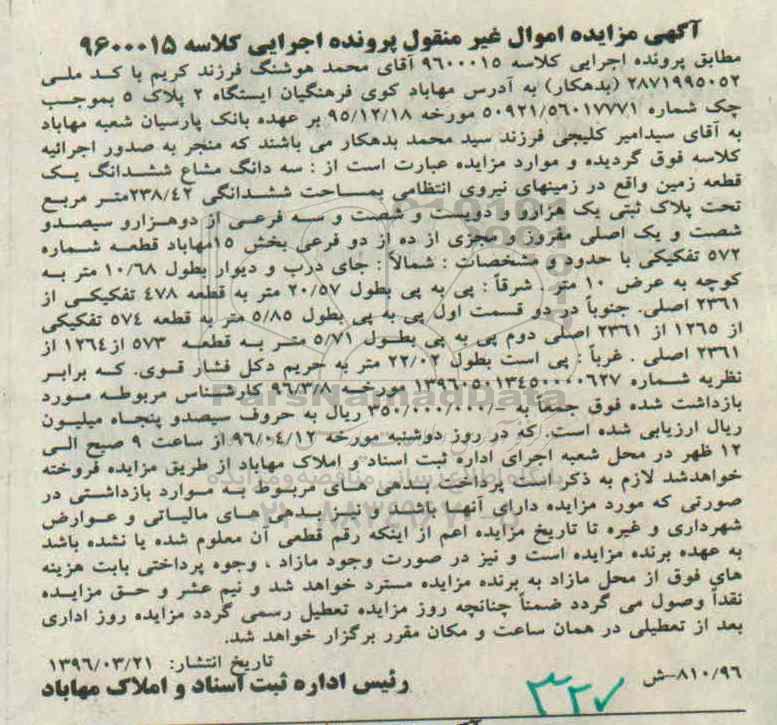 آگهی مزایده اموال غیر منقول پرونده اجرایی کلاسه ۹۶۰۰۰۱۵
مطابق پرونده اجرایی کلاسه ۹۶۰۰۰۱۵ آقای محمد هوشنگ فرزند کریم با کد ملی
۲۸۷۱۹۹۵۰۵۲ (بدهکار) به آدرس مهاباد کوی فرهنگیان ایستگاه ۲ پلاک ۵ بموجب
چک شماره ۵۰۹۲۱/۵۶۰۱۷۷۷۱ مورخه ۹۵/۱۲/۱۸ بر عهده بانک پارسیان شعبه مهاباد
به آقای سیدامیر کلیجی فرزند سید محمد بدهکار می باشند که منجر به صدور اجرائیه
کلاسه فوق گردیده و موارد مزایده عبارت است از : سه دانگ مشاع ششدانگ یک
قطعه زمین واقع در زمینهای نیروی انتظامی بمساحت ششدانگی ۲۳۸/۴۲متر مربع
تحت پلاک ثبتی یک هزارو و دویست و شصت و سه فرعی از دوهزارو سیصدو
شصت و یک اصلی مفروز و مجزی از ده از دو فرعی بخش ۱۵مهاباد قطعه شماره
۵۷۲ تفکیکی با حدود و مشخصات : شمالاً : جای درب و دیوار بطول ۱۰/۶۸ متر به
کوچه به عرض ۱۰ متر . شرقاً : پی به پی بطول ۲۰/۵۷ متر به قطعه ۴۷۸ تفکیکی از
۲۳۶۱ اصلی. جنوباً در دو قسمت اول پی به پی بطول ۵/۸۵ متر به قطعه ۵۷۴ تفکیکی
از ۱۲۶۵ از ۲۳۶۱ اصلی دوم پی به پی بطول ۵/۷۱ متر به قطعه ۵۷۳ از۱۲۶۴ از
۲۳۶۱ اصلی . غرباً : پی است بطول ۲۲/۰۲ متر به حریم دکل فشار قوی. که برابر
نظریه شماره ۱۳۹۶۰۵۰۱۳۴۵۰۰۰۰۶۲۷ مورخه ۹۶/۳/۸ کارشناس مربوطه مورد
بازداشت شده فوق جمعاً به –/۳۵۰/۰۰۰/۰۰۰ ریال به حروف سیصدو پنجاه میلیون
ریال ارزیابی شده است. که در روز دوشنبه مورخه ۹۶/۰۴/۱۲ از ساعت ۹ صبح الی
۱۲ ظهر در محل شعبه اجرای اداره ثبت اسناد و املاک مهاباد از طریق مزایده فروخته
خواهدشد لازم به ذکر است پرداخت بدهی های مربوط به موارد بازداشتی در
صورتی که مورد مزایده دارای آنها باشد و نیز بدهی های مالیاتی و عوارض
شهرداری و غیره تا تاریخ مزایده اعم از اینکه رقم قطعی آن معلوم شده یا نشده باشد
به عهده برنده مزایده است و نیز در صورت وجود مازاد ، وجوه پرداختی بابت هزینه
های فوق از محل مازاد به برنده مزایده مسترد خواهد شد و نیم عشر و حق مزایده
نقداً وصول می گردد ضمناً چنانچه روز مزایده تعطیل رسمی گردد مزایده روز اداری
بعد از تعطیلی در همان ساعت و مکان مقرر برگزار خواهد شد.
تاریخ انتشار: ۱۳۹۶/۰۳/۲۱
۸۱۰/۹۶–ش
رئیس اداره ثبت اسناد و املاک مهاباد
ParsNamadData